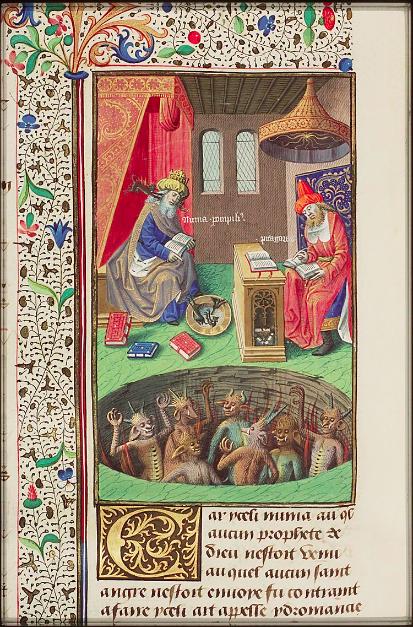 Numa pompili⁹
pitagoras
Car yceli numa au q̄l
aucun prophete de
dieu nestoit venu
auquel aucun saint
angre nestoit enuoye fu contraint
a faire yceli art apelle ydromancie